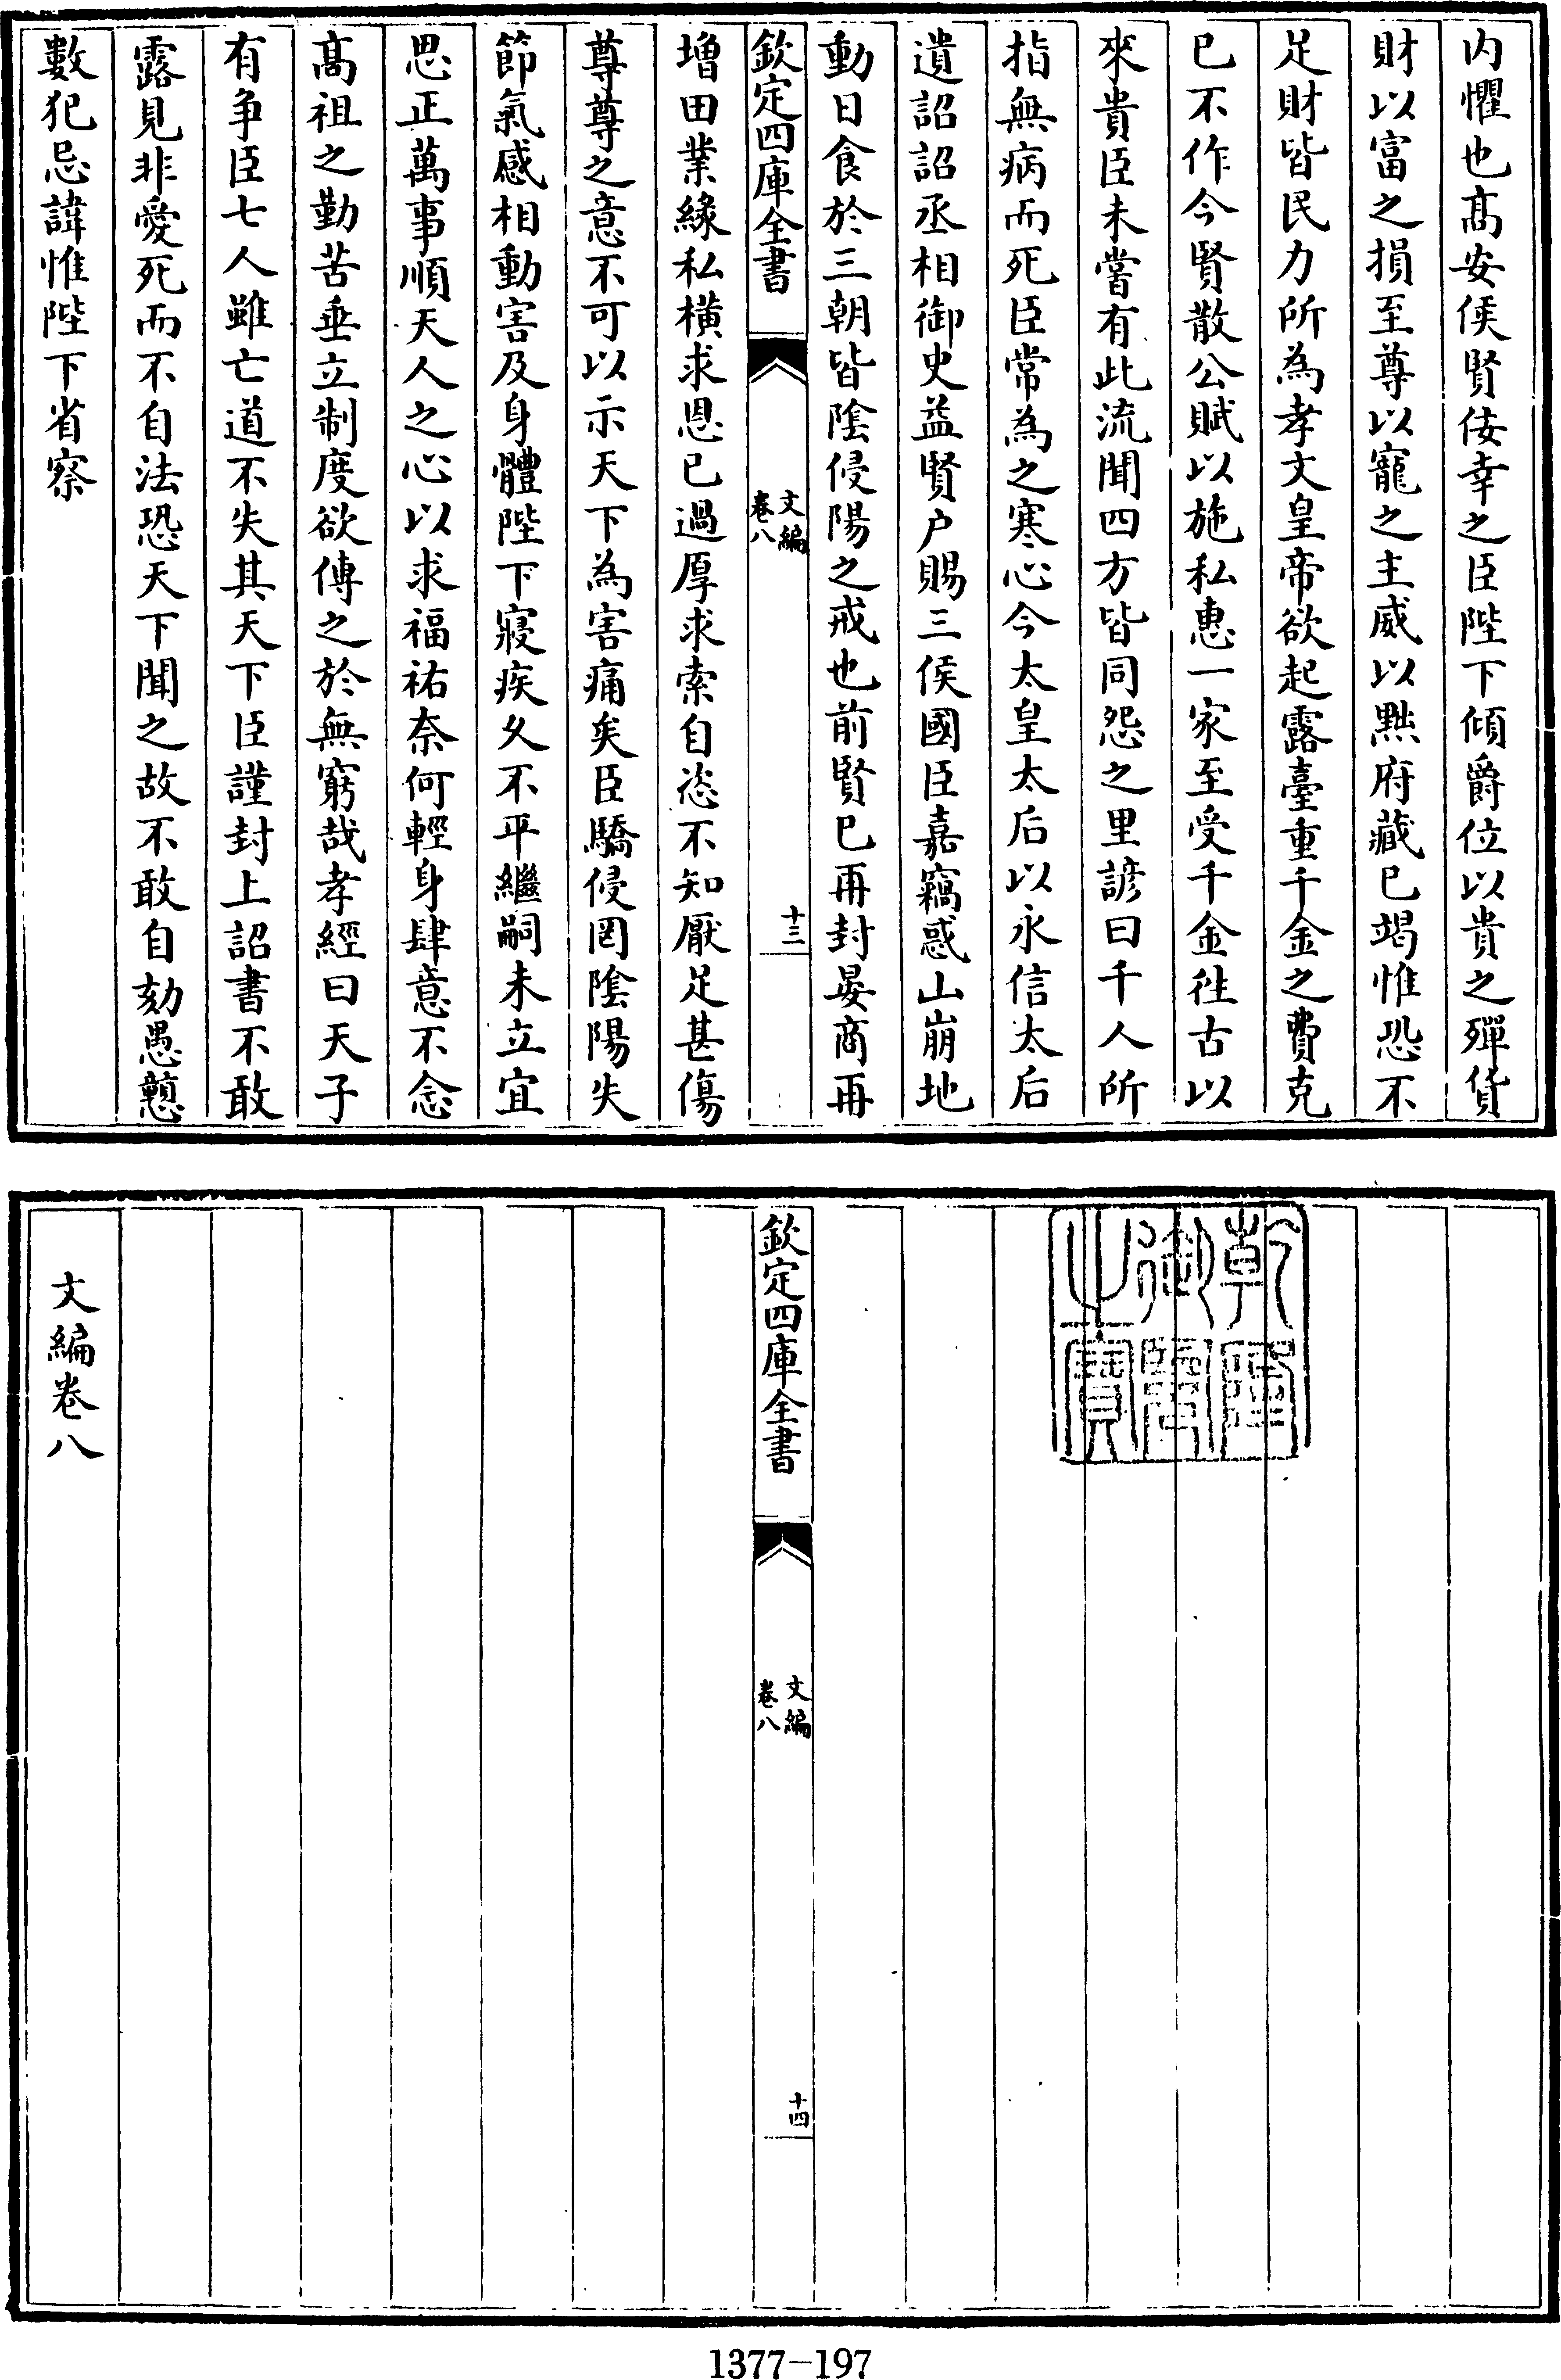 内懼也髙安侯賢佞幸之臣陛下傾爵位以貴之殫貨
財以富之損至尊以寵之主威以黜府藏已竭惟恐不
足財皆民力所為孝文皇帝欲起露臺重千金之費克
已不作今賢散公賦以施私惠一家至受千金徃古以
來貴臣未嘗有此流聞四方皆同怨之里諺曰千人所
指無病而死臣常為之寒心今太皇太后以永信太后
遺詔詔丞相御史益賢户賜三侯國臣嘉竊惑山崩地
動日食於三朝皆陰侵陽之戒也前賢已再封晏商再
欽定四庫全書
文編
卷八
十三
増田業緣私横求恩已過厚求索自恣不知厭足甚傷
尊尊之意不可以示天下為害痛矣臣驕侵罔陰陽失
節氣感相動害及身體陛下寢疾乆不平繼嗣未立宜
思正萬事順天人之心以求福祐奈何輕身肆意不念
髙祖之勤苦垂立制度欲傳之於無窮哉孝經曰天子
有争臣七人雖亡道不失其天下臣謹封上詔書不敢
露見非愛死而不自法恐天下聞之故不敢自劾愚戇
數犯忌諱惟陛下省察
乾隆御覽之寶
欽定四庫全書
文編
卷八
十四
文編卷八
1377-197